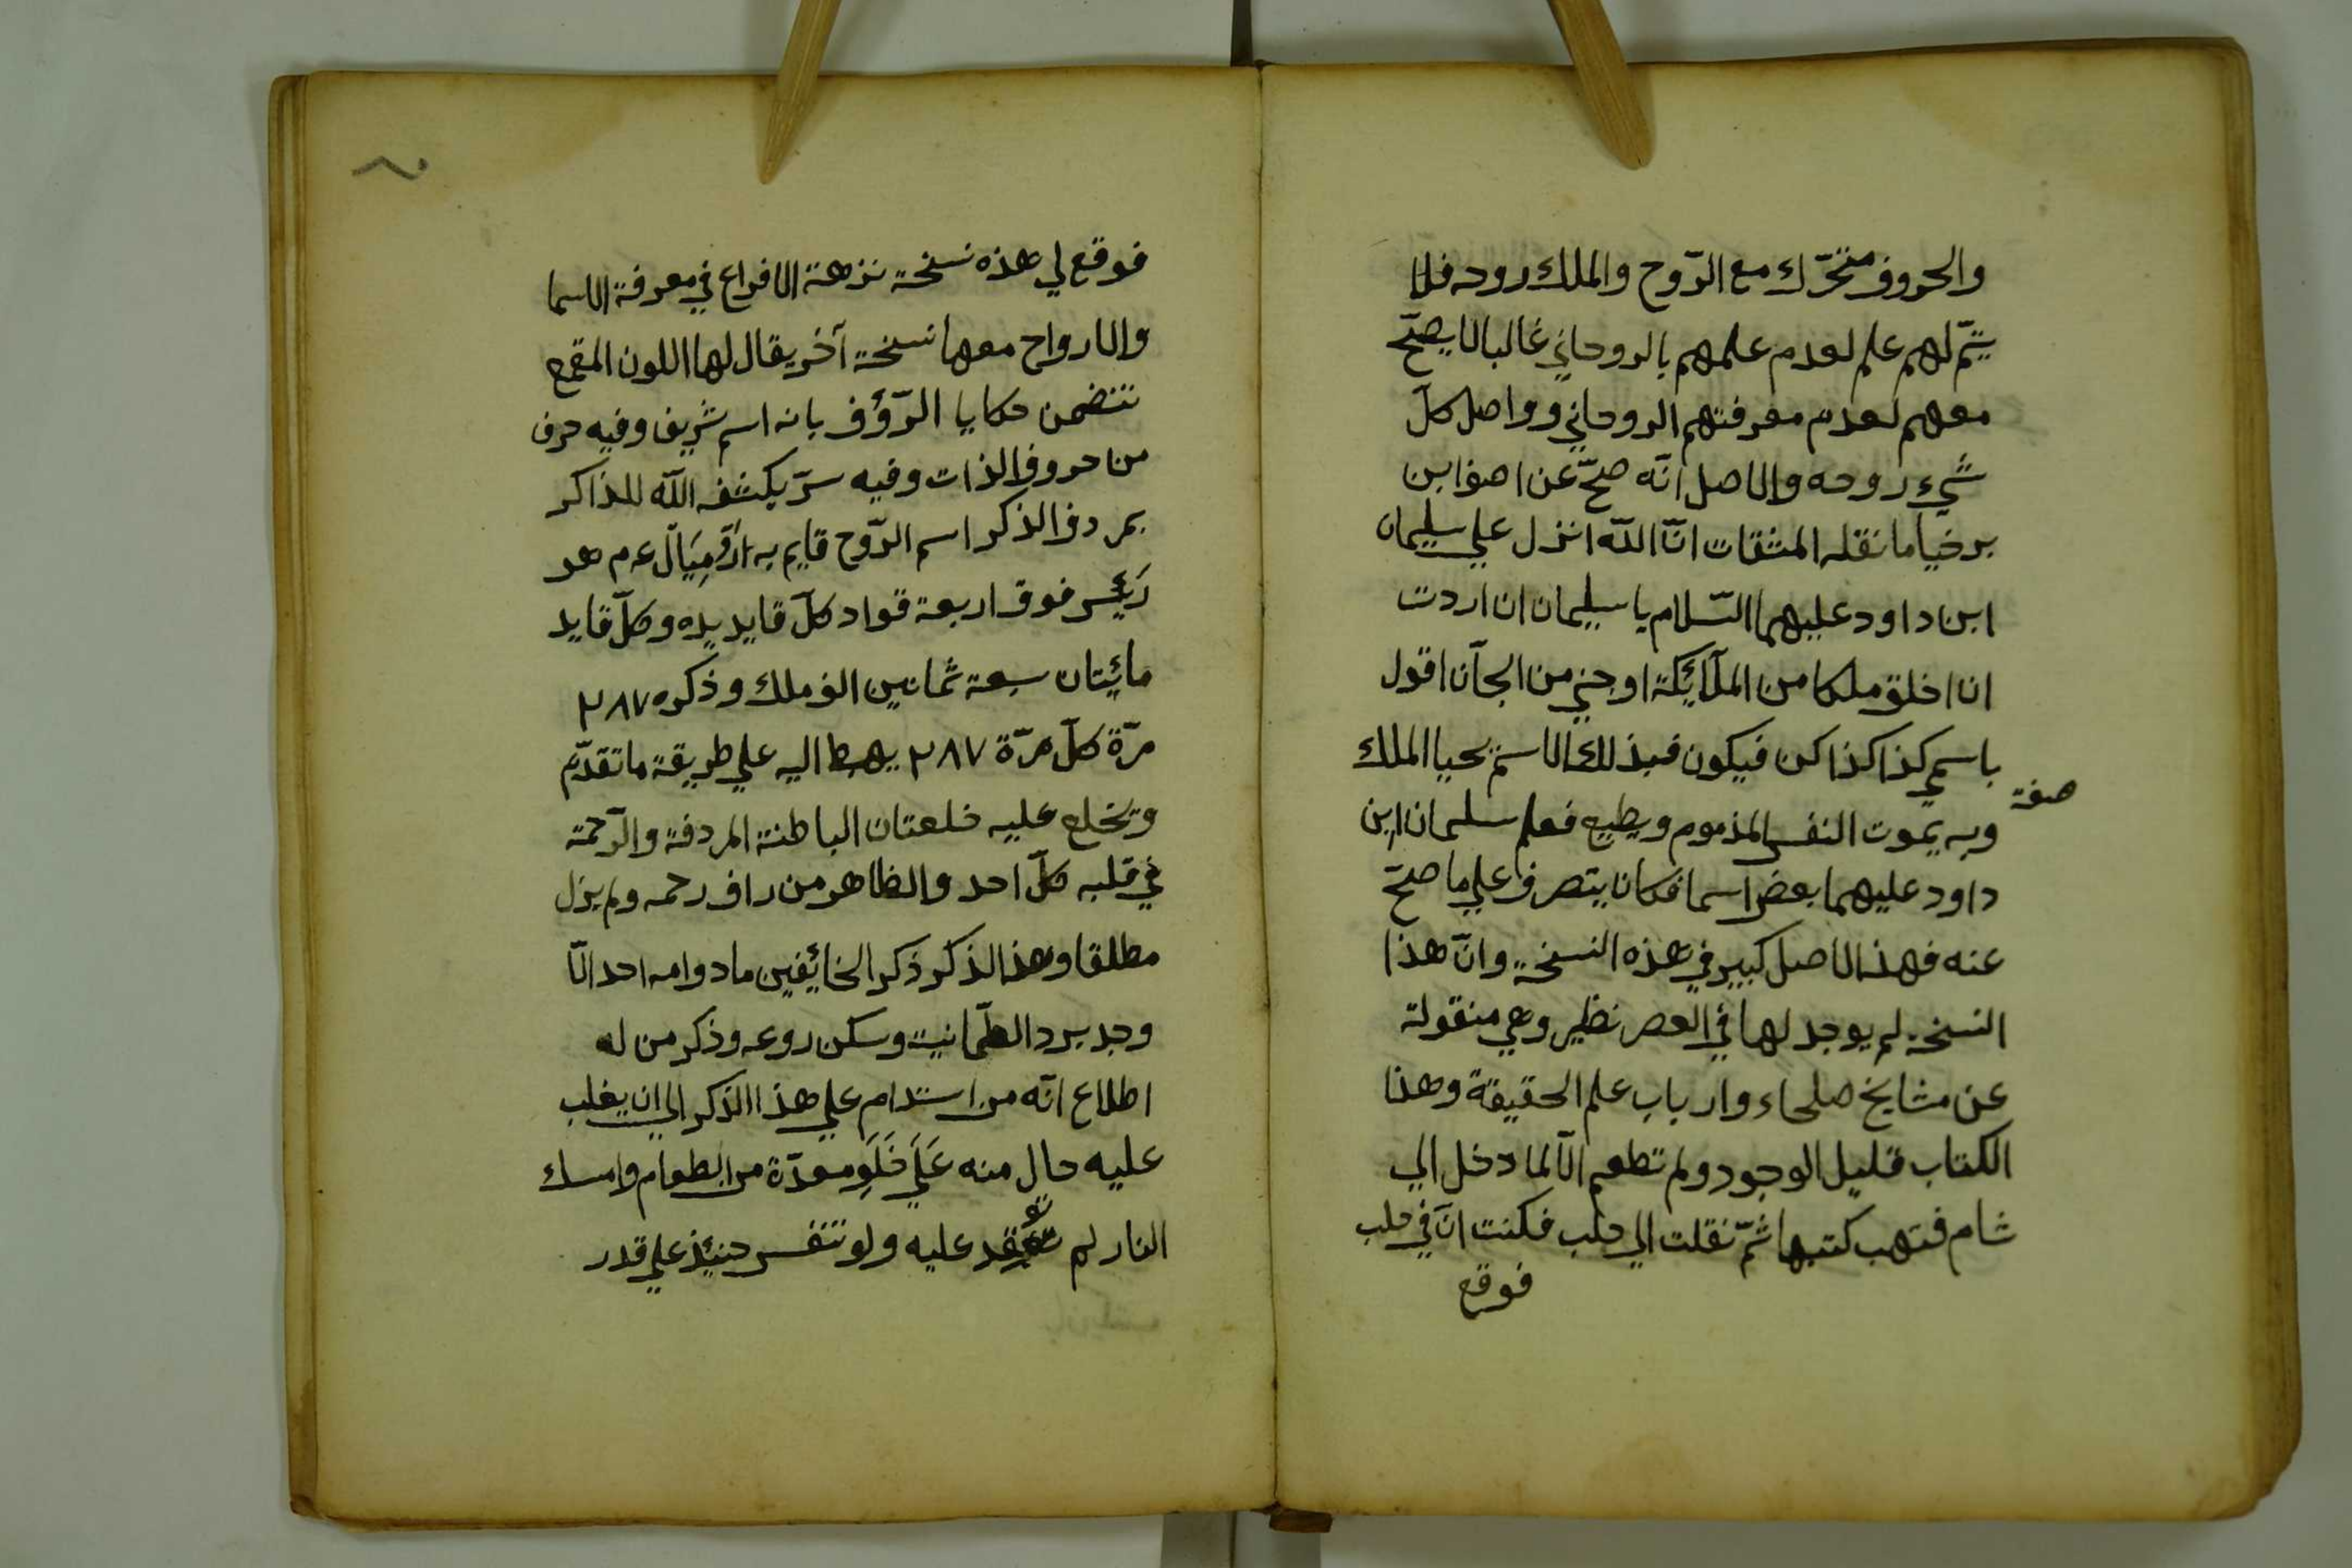 والحروف متحرّك مع الرّوح والملك روحه فلا
يتمّ لهم علم لعدم علمهم بالروحاني غالبا لا يصحّ
معهم لعدم معرفتهم الروحاني وواصل كلّ
شيء روحه والاصل انّه صحّ عن اصف ابن
برخيا ما نقله المثقات انّ الله انزل علي سليمان
ابن داود عليهما السّلام يا سليمان ان اردت
ان اخلق ملكا من الملآئكة او جني من الجآن اقول
باسمي كذا كذا كن فيكون فبذلك الاسم يحيا الملك
صفة
وبه يموت النفس المذموم ويطيع فعلم سليمان ابن
داود عليهما بعض اسما فكان يتصرف علي ما صحّ
عنه فهذا الاصل كبير في هذه النسخة وانّ هذا
النسخة لم يوجد لها في العصر نظير وهي منقولة
عن مشايخ صلحاء وارباب علم الحقيقة وهذا
الكتاب قليل الوجود ولم تطعم الّا لما دخل الي
شام فتهب كتبها ثمّ نقلت الي حلب فكنت انَ في حلب
فوقع
فوقع لي هذه نسخة نزهة الافراع في معرفة الاسما
والارواح معها نسخة آخر يقال لها اللون المقمع
تتضمن حكايا الرّؤف بانه اسم شريف وفيه حرف
من حروف الذات وفيه سرّ يكشف الله للذاكر
بمردف الذكر اسم الرّوح قايم به ارؤميال عم هو
رئيس فوق اربعة قواد كلّ قايد يده وكلّ قايد
مائيتان سبعة ثمانين الف ملك وذكره ٢٨٧
مرّة كلّ مرّة ٢٨٧ يهبط اليه علي طريقة ما تقدّم
وتخلع عليه خلعتان الباطنة المردفة والرّحمة
في قلبه كلّ احد والظاهر من راف رحمه ولم يزل
مطلقا وهذ الذكر ذكر الخائيفين ما دوامه احد الّا
وجد برد الطمانيت وسكن روعه وذكر من له
اطلاع انّه من استدام علي هذا الذكر الي ان يغلب
عليه حال منه عَلَي خَلَوِ معدّة من الطعام وامسك
النار لم تعقد عليه ولو تنفس حنيئذ علي قدر